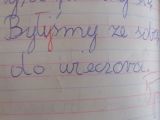 Byłyśmy ze sobą
do wieczora.